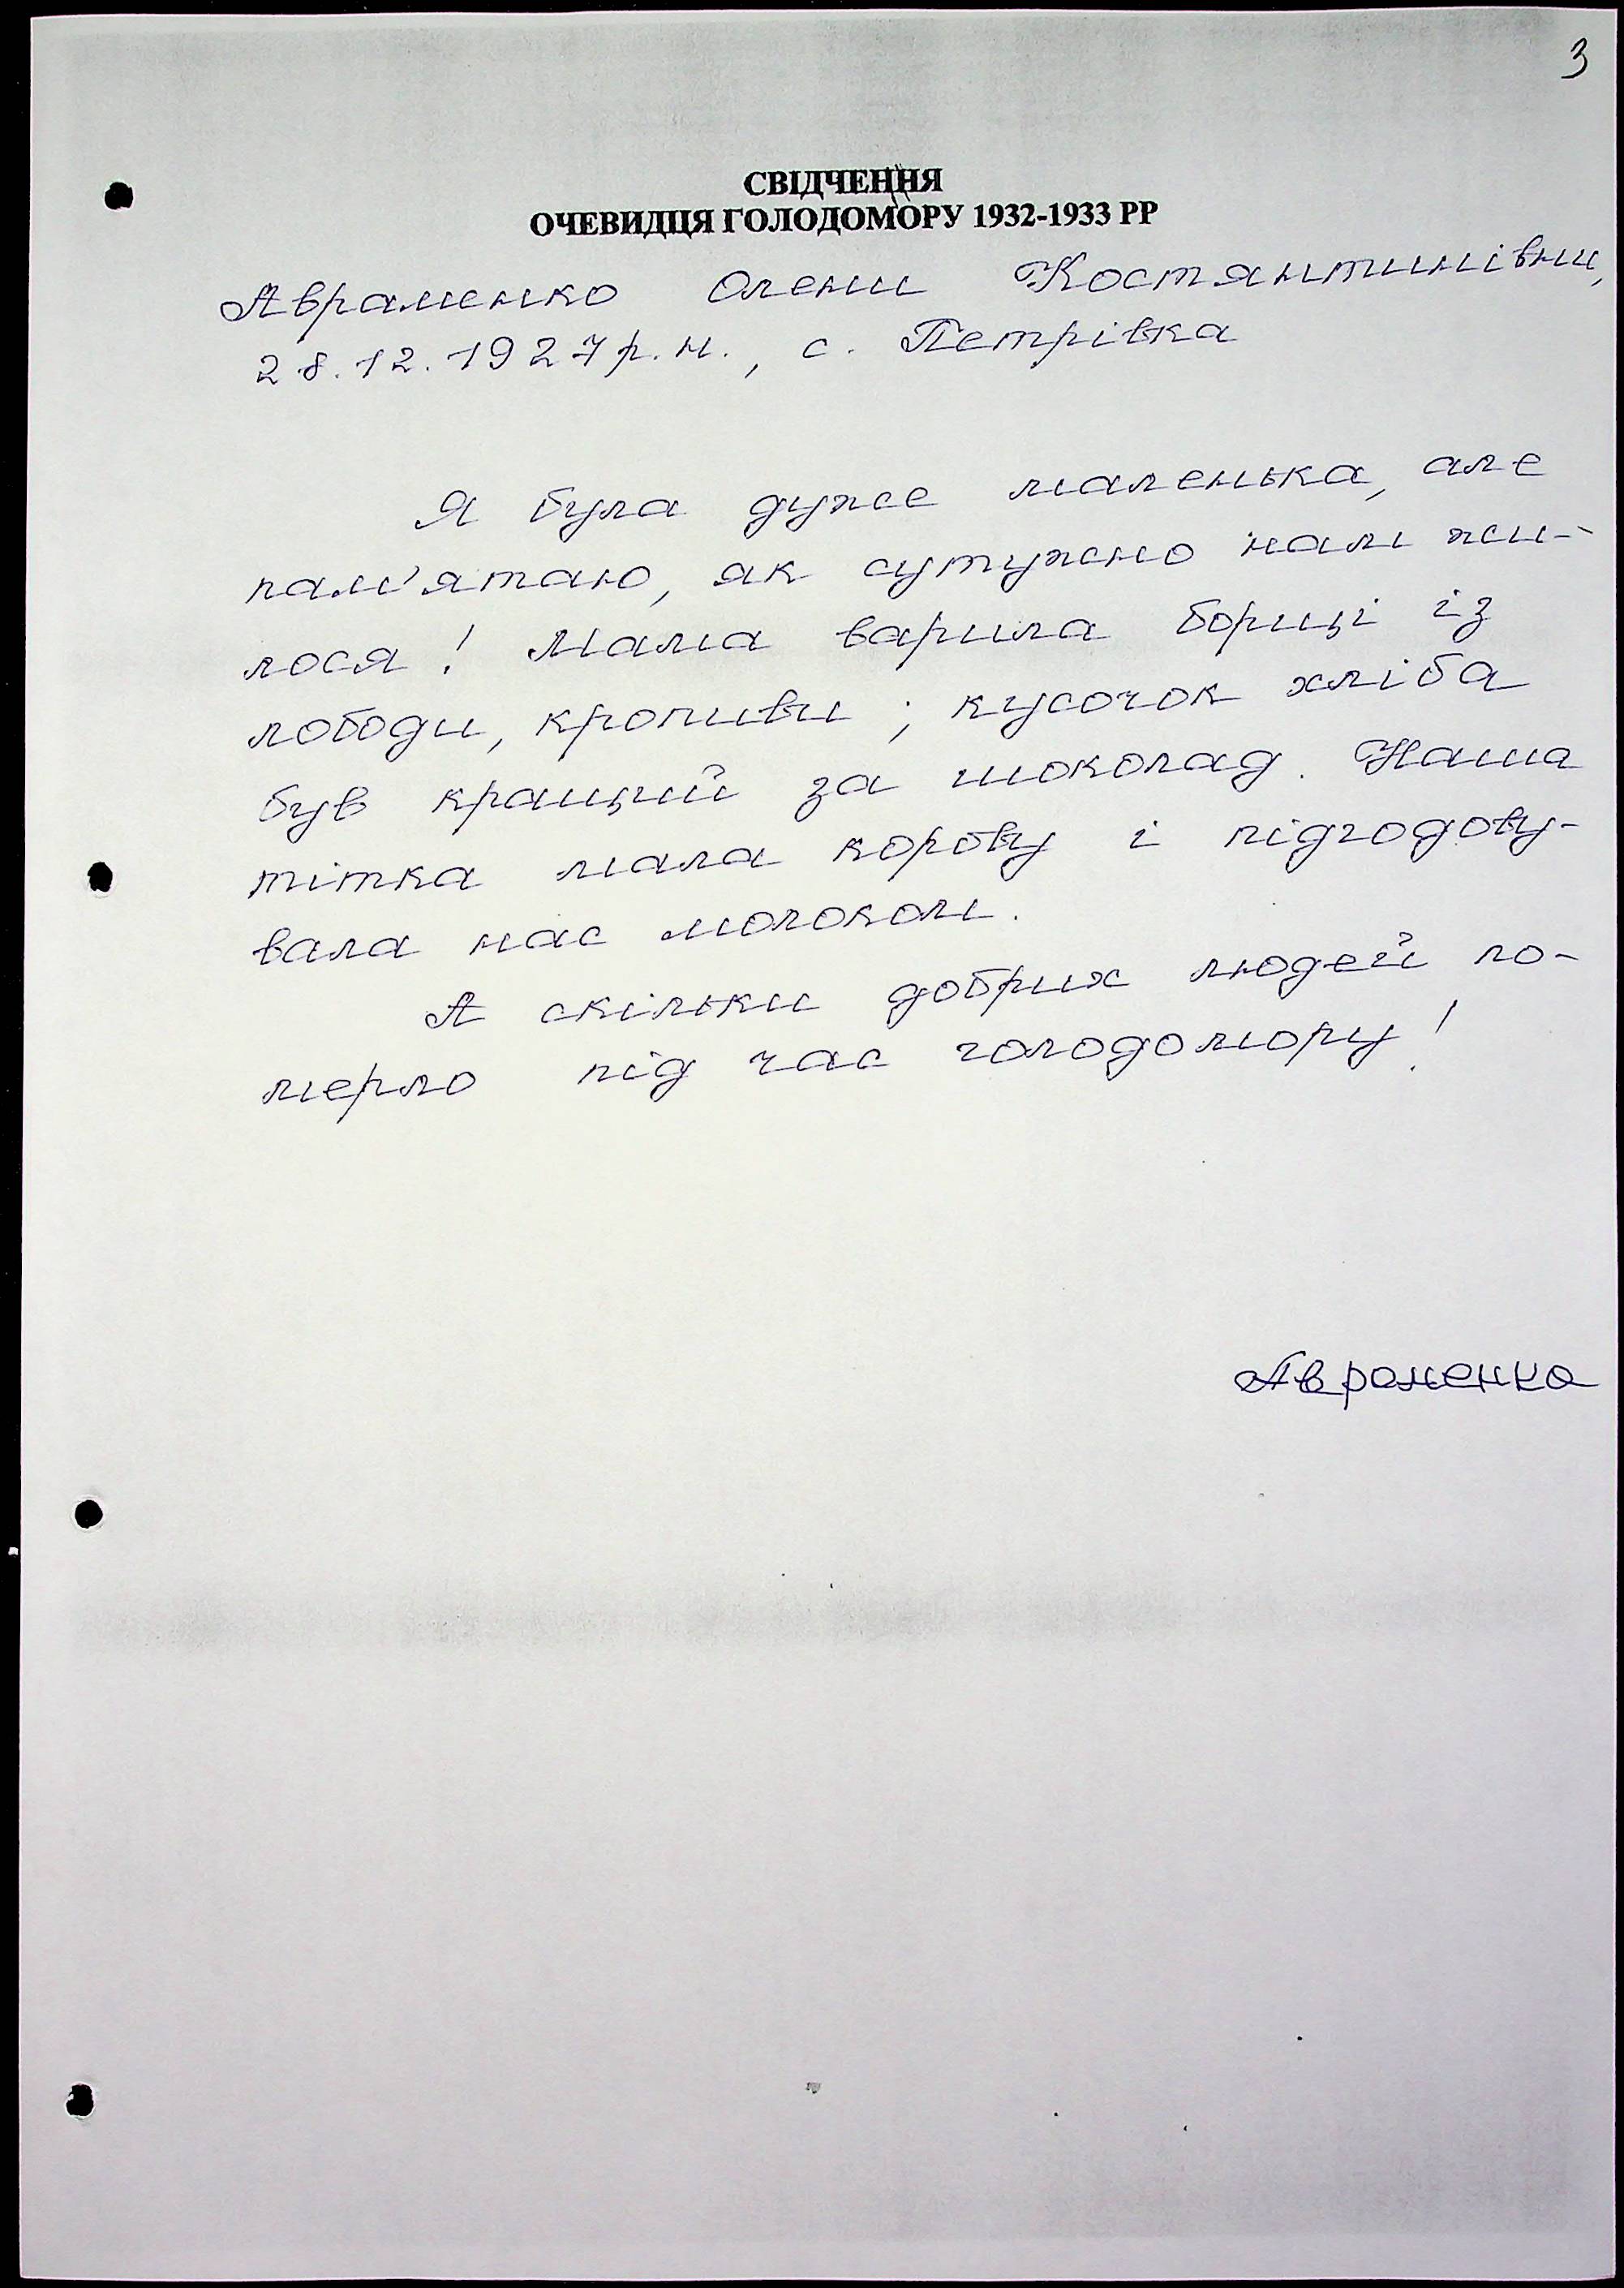 3
СВІДЧЕННЯ
ОЧЕВИДЦЯ ГОЛОДОМОРУ 1932-1933 РР
Авраменко Олени Костянтинівни,
28.12.1927р.н., с. Петрівка
Я була дуже маленька, але
пам'ятаю, як сутужно нам жи-
лося! Мама варила борщі із
лободи, кропиви; кусочок хліба
був кращий за шоколад. Наша
тітка мала корову і підгодову-
вала нас молоком.
А скільки добрих людей по-
мерло під час голодомору!
Авраменко